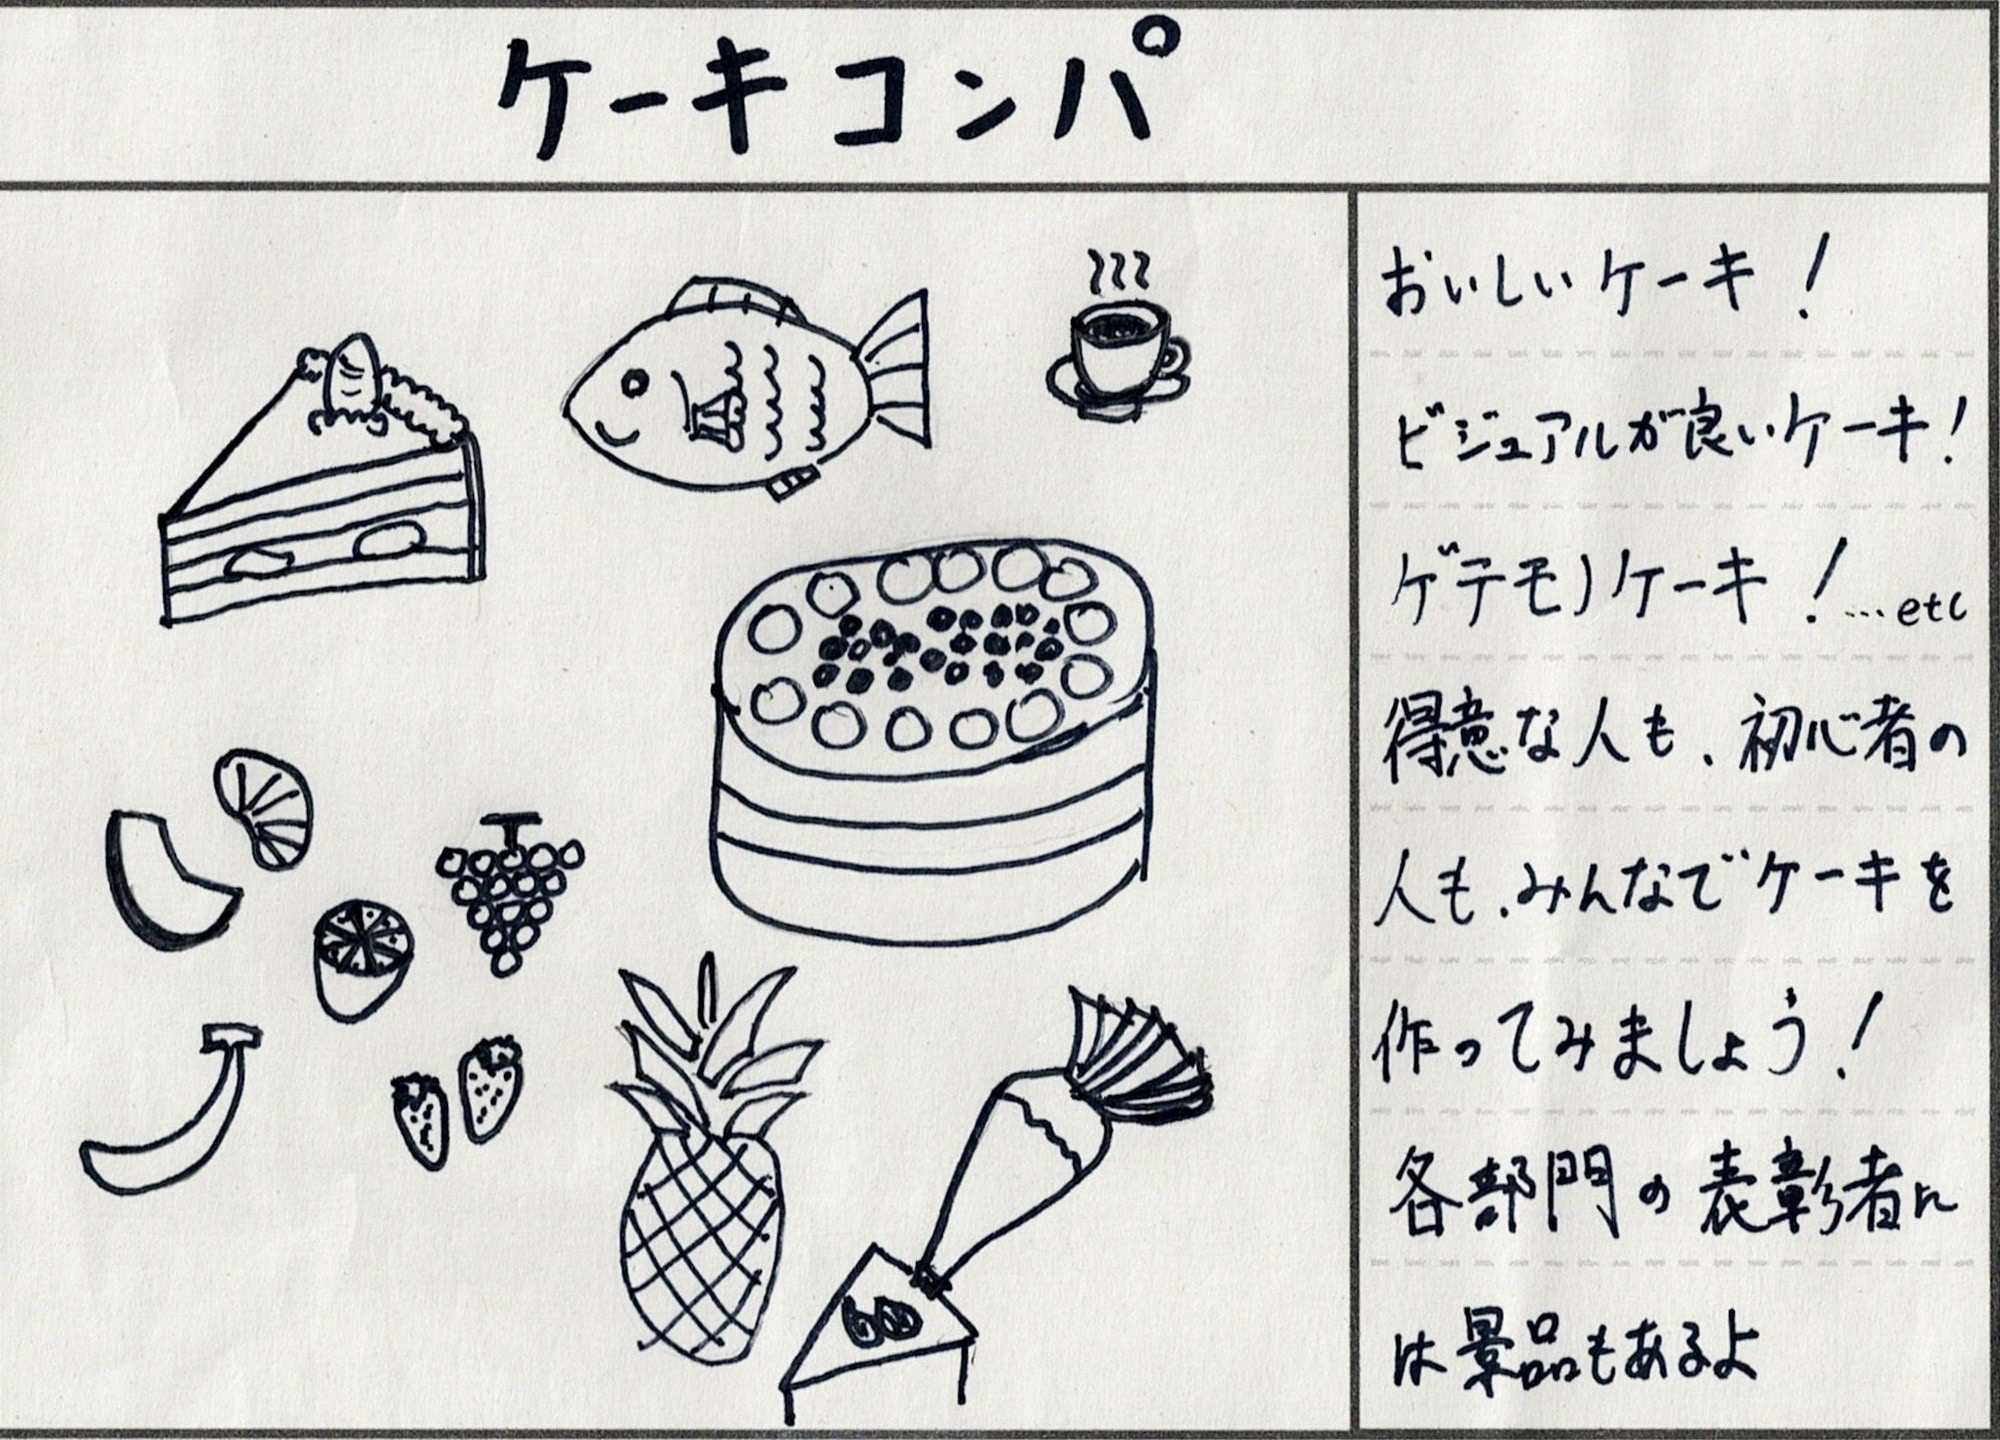 ケーキコンパ
おいしいケーキ！
ビジュアルが良いケーキ！
ゲテモノケーキ！…etc
得意な人も、初心者の
人も、みんなでケーキを
作ってみましょう！
各部門の表彰者に
は景品もあるよ